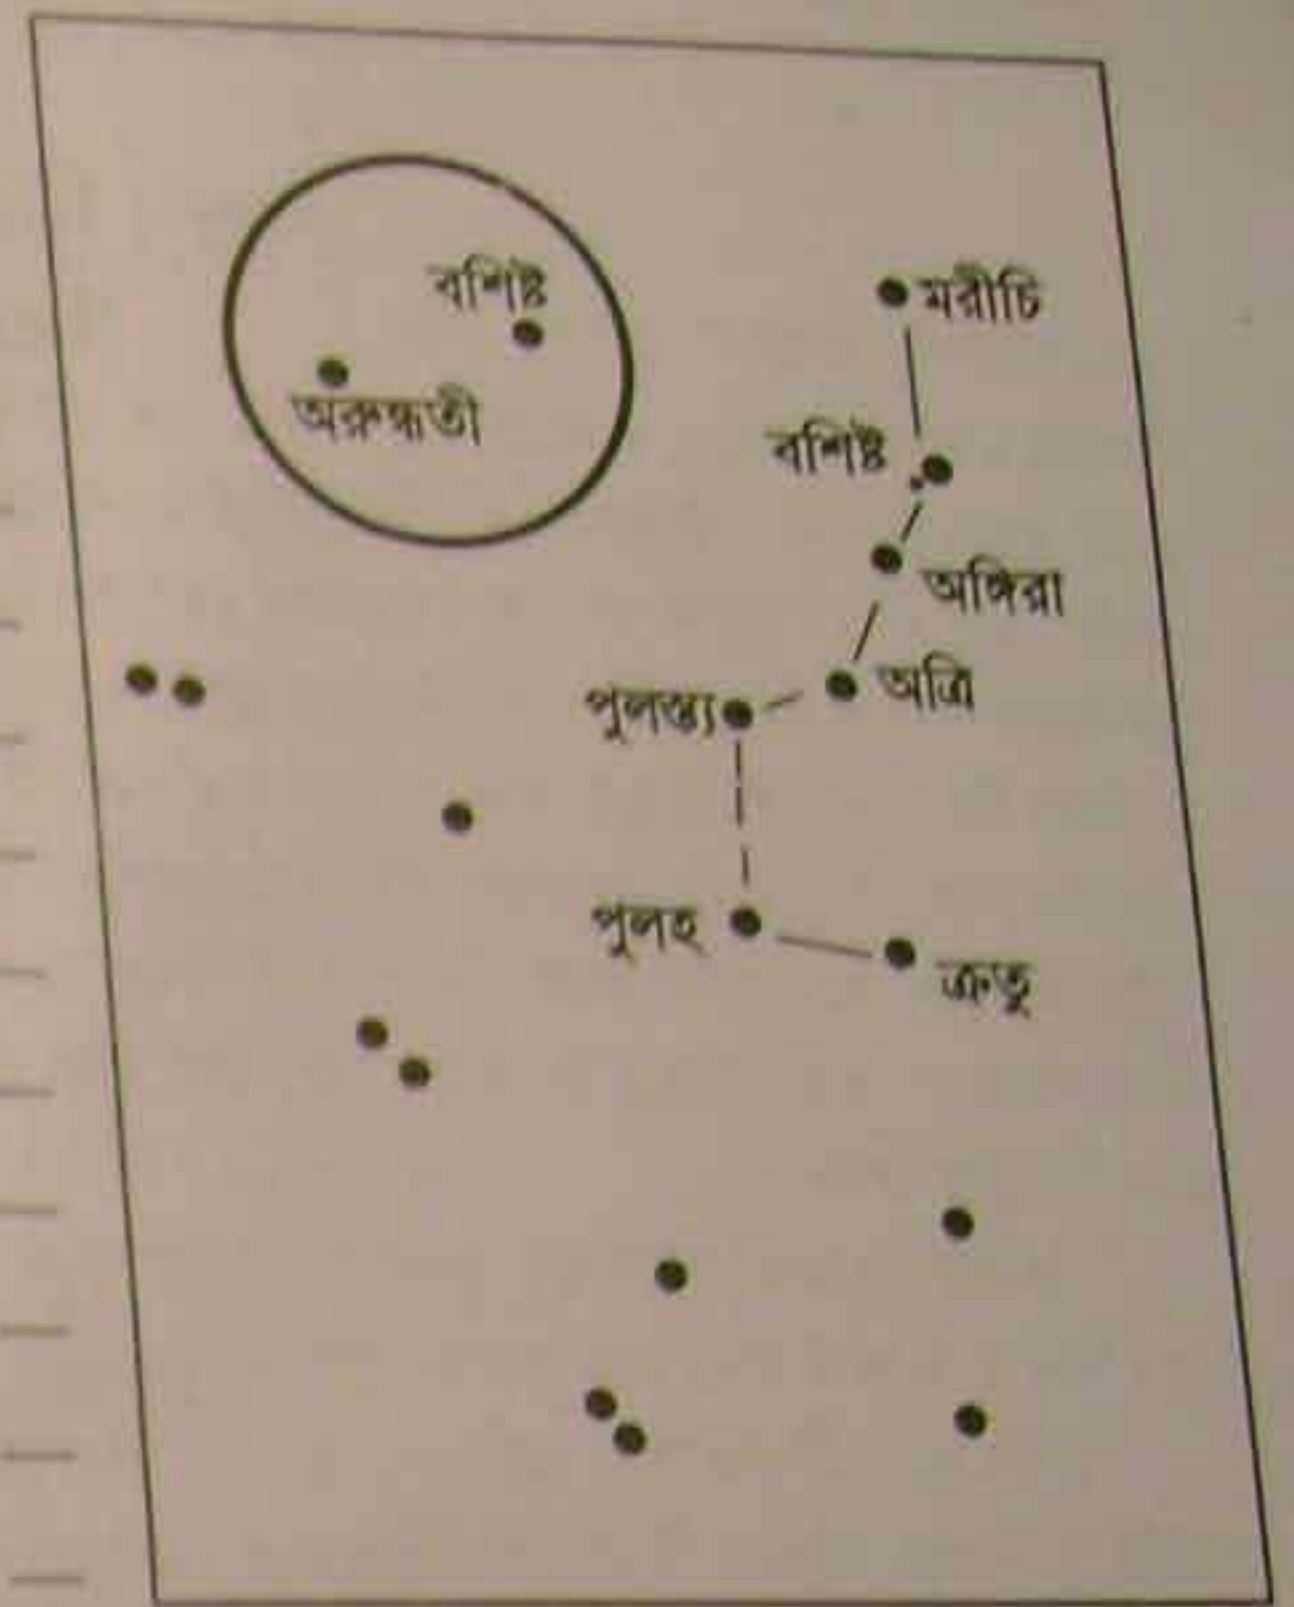 বশিষ্ট
অরুন্ধতী
মরীচি
বশিষ্ট
অঙ্গিরা
অত্রি
পুলস্ত্য
পুলহ
ক্রতু